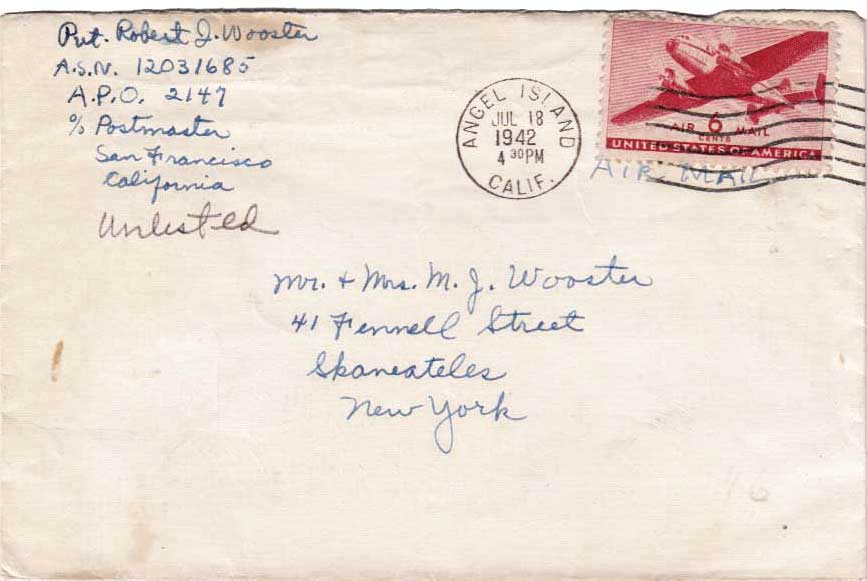 Pvt. Robert J. Wooster
A.S.N. 12031685
A.P.O. 2147
℅ Postmaster
San Francisco
California
Unlisted
ANGEL ISLAND
JUL 18
1942
4 30 PM
CALIF.
AIR 6 MAIL
CENTS
UNITED STATES OF AMERICA
AIR MAIL
Mr. & Mrs. M. J. Wooster
41 Fennell Street
Skaneateles
New York